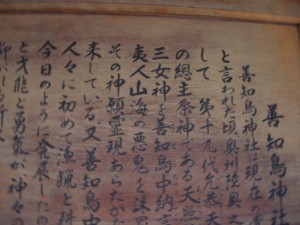 善知鳥神社
善知鳥神社は現在の青
と言われた頃奥州陸奥之
して 第十九代允恭天
の総主祭神である天照
三女神を善知鳥中納言
夷人山海の悪鬼を誅罰
その神願霊現あらたかな
来している又善知鳥中
人々に初めて漁猟と耕
今日のように発展したの
と才能と勇気が、神々の